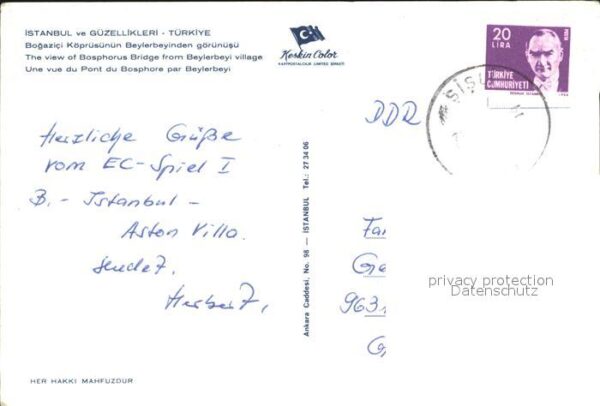 İSTANBUL ve GÜZELLİKLERİ - TÜRKİYE
Boğaziçi Köprüsünün Beylerbeyinden görünüşü
The view of Bosphorus Bridge from Beylerbeyi village
Une vue du Pont du Bosphore par Beylerbeyi
Keskin Color
KARTPOSTALCILIK LIMITED ŞİRKETİ
20
LIRA
TÜRKİYE
CUMHURİYETİ
ŞİŞ
DDR
Herzliche Grüße
vom EC-Spiel I
B. - Istanbul -
Aston Villa.
sendet,
Herbert,
Ankara Caddesi, No. 98 — İSTANBUL Tel.: 27 34 06
Fa
Ge
963
privacy protection
Datenschutz
HER HAKKI MAHFUZDUR